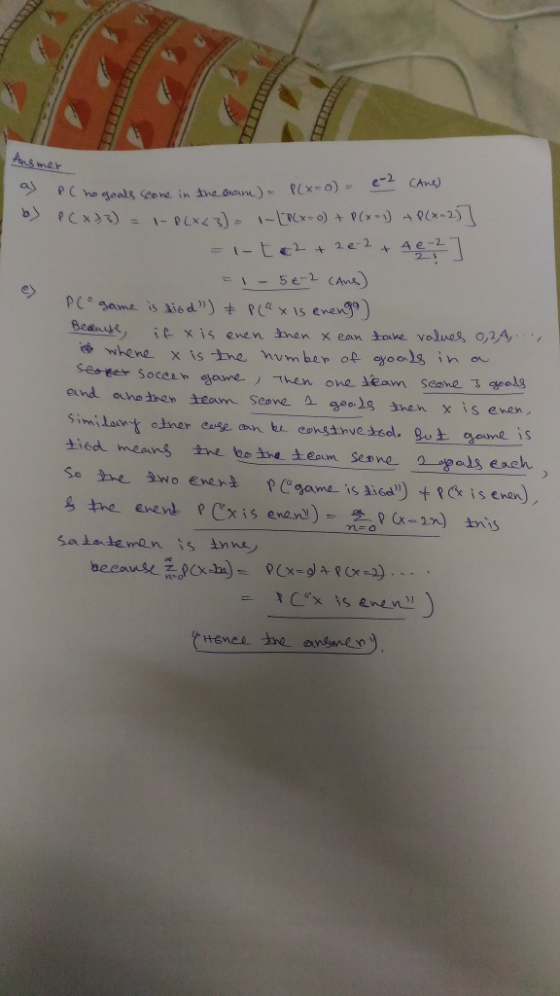 Answer
a) P( no goals score in the game) = P(x=0) = e-2 (Ans)
b) P(x≥3) = 1-P(x<3) = 1-[P(x=0) + P(x=1) +P(x=2)]
= 1-[e-2 + 2e-2 + 4e-2/2!]
= 1 - 5e-2 (Ans)
c) P("game is tied") ≠ P("x is even")
Because, if x is even then x can take values 0,2,4,...,
where x is the number of goals in a
soccer game, Then one team score 3 goals
and another team score 1 goals then x is even,
similary other case can be constructed. But game is
tied means the bo the team score 2 goals each,
so the two event P("game is tied") ≠ P(x is even),
& the event P("x is even") = ∞Σn=0 P(x=2n) this
satatemen is true,
because ∞Σn=0 P(x=2n) = P(x=0)+P(x=2)....
= P("x is even")
("Hence the answer").